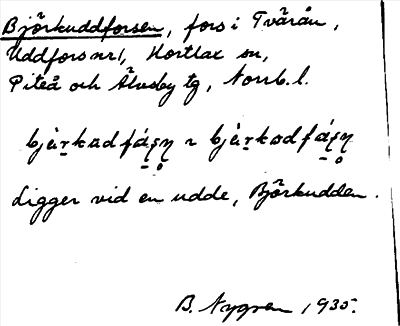 Björkuddforsen, fors i Tvärån,
Uddfors nr 1, Hortlax sn,
Piteå och Älvsby tg, Norrb. l.
Ligger vid en udde, Björkudden.
B. Nygren 1935.